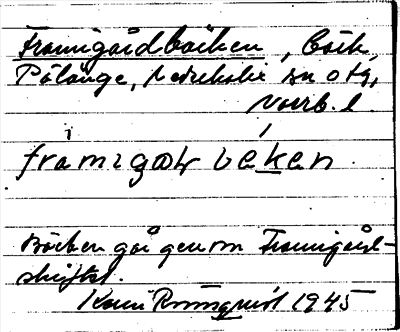 Framigårdbäcken, bäck,
Pålänge, Nederkalix sn o tg,
Norrb. l.
framigaɷ bɛ́ken.
Bäcken går genom Framigårds-
skiftet.
Karin Rönnquist 1945